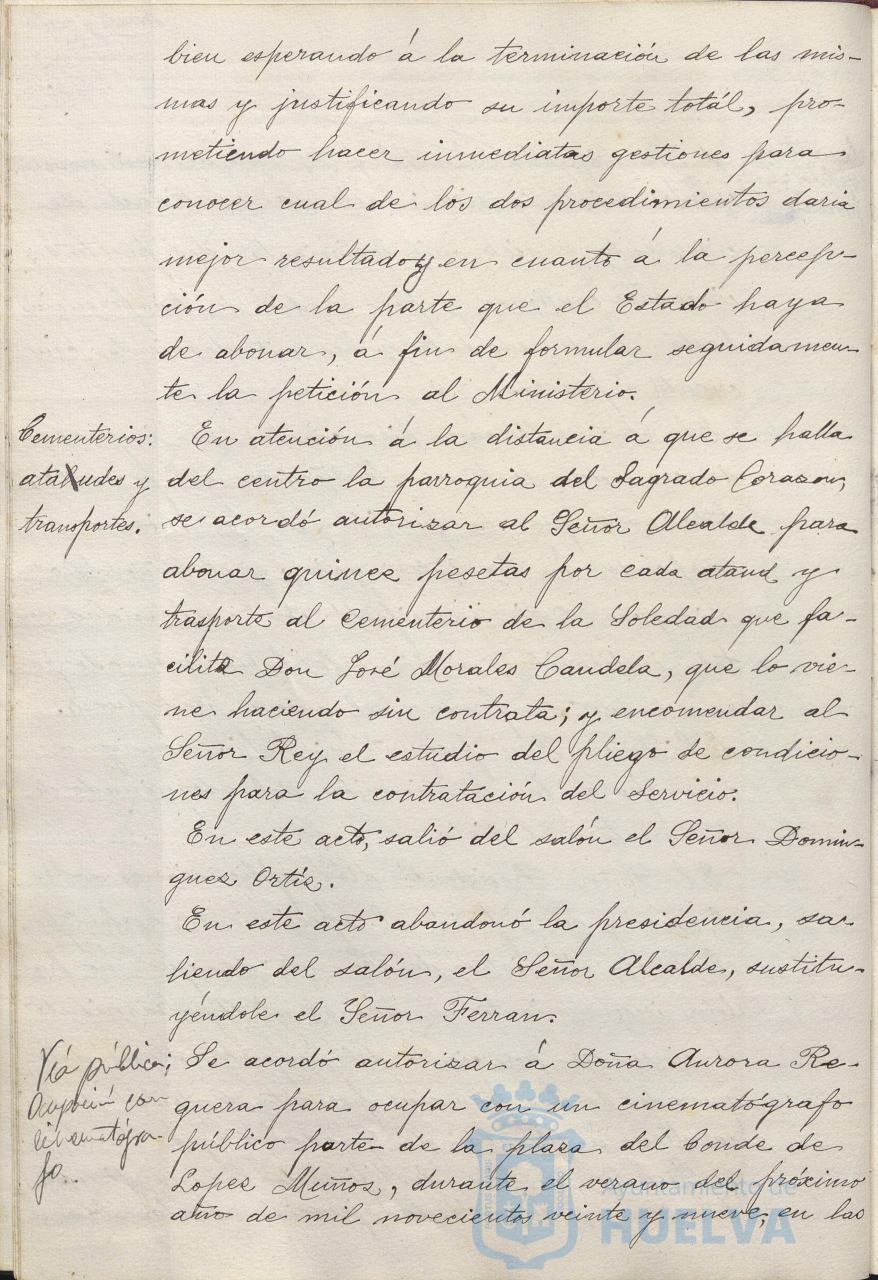 bien esperando á la terminación de las mis-
mas y justificando su importe totál, pro-
metiendo hacer inmediatas gestiones para
conocer cual de los dos procedimientos daria
mejor resultado y en cuanto á la percep-
ción de la parte que el Estado haya
de abonar, á fin de formular seguidamen-
te la petición al Ministerio.
Cementerios:
ataudes y
transportes.
En atención á la distancia á que se halla
del centro la parroquia del Sagrado Corazon,
se acordó autorizar al Señor Alcalde para
abonar quince pesetas por cada ataud y
trasporte al Cementerio de la Soledad que fa-
cilita Don José Morales Candela, que lo vie-
ne haciendo sin contrata; y encomendar al
Señor Rey el estudio del pliego de condicio-
nes para la contratación del Servicio.
En este acto, salió del salón el Señor Domin-
guez Ortíz.
En este acto abandonó la presidencia, sa-
liendo del salón, el Señor Alcalde, sustitu-
yéndole el Señor Ferran.
Viá pública;
Ocupación con
cinematógra-
fo.
Se acordó autorizar á Doña Aurora Re-
guera para ocupar con un cinematógrafo
público parte de la plaza del Conde de
Lopez Muños, durante el verano del próximo
año de mil novecientos veinte y nueve, en las
Ayuntamiento de
HUELVA